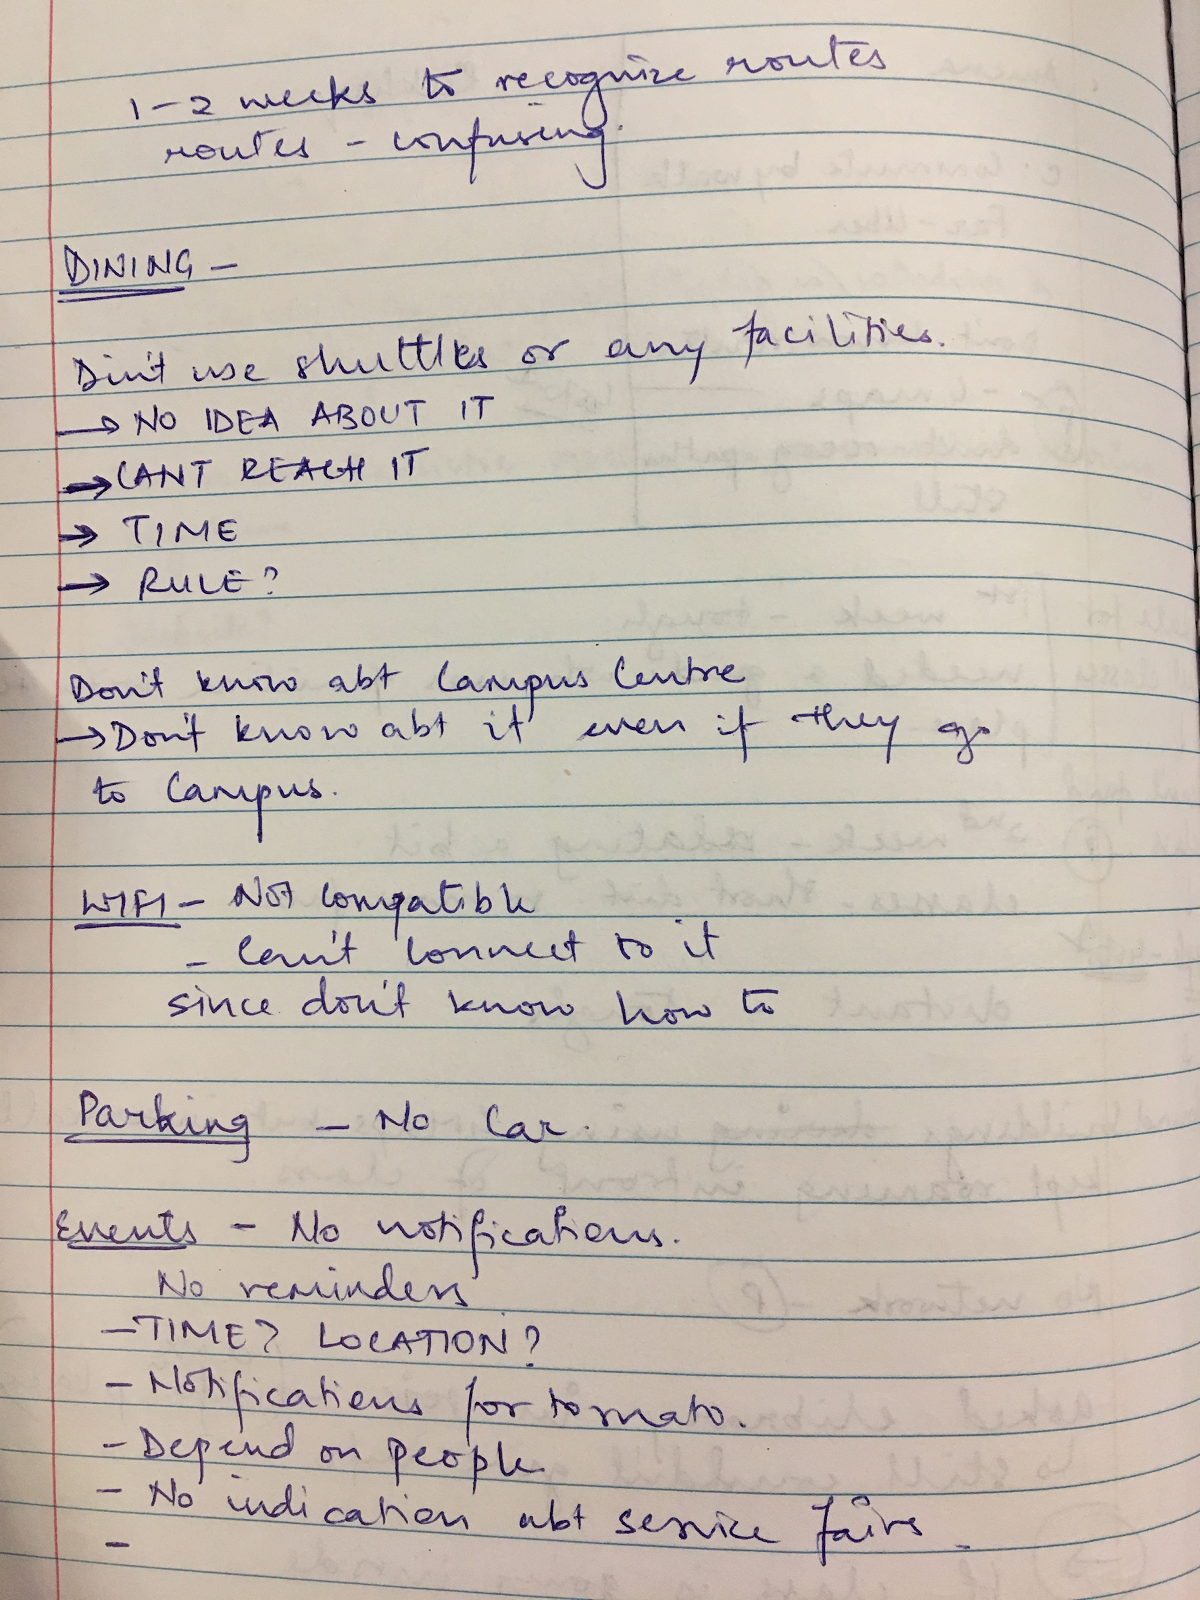 1-2 weeks to recognize routes
routes - confusing.
DINING -
Din't use shuttles or any facilities.
→ NO IDEA ABOUT IT
→ CANT REACH IT
→ TIME
→ RULE?
Don't know abt Campus Centre
→ Don't know abt it even if they go
to Campus.
WIFI - Not compatible
- Can't connect to it
since don't know how to
Parking - No Car.
Events - No notifications.
No reminders
- TIME? LOCATION?
- Notifications for tomato.
- Depend on people
- No indication abt service fairs.
-